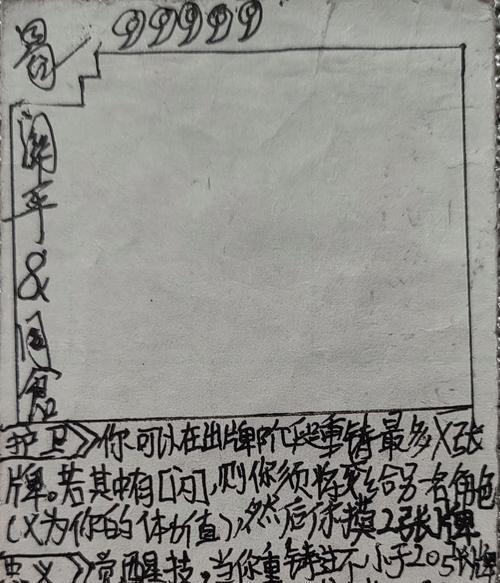 蜀
关平&周仓
护卫》你可以在出牌阶段重铸最多X张
牌。若其中有[闪],则你须将其给另一名角色
(X为你的体力值),然后你摸2张牌
忠义》觉醒技,当你重铸过不小于20张牌